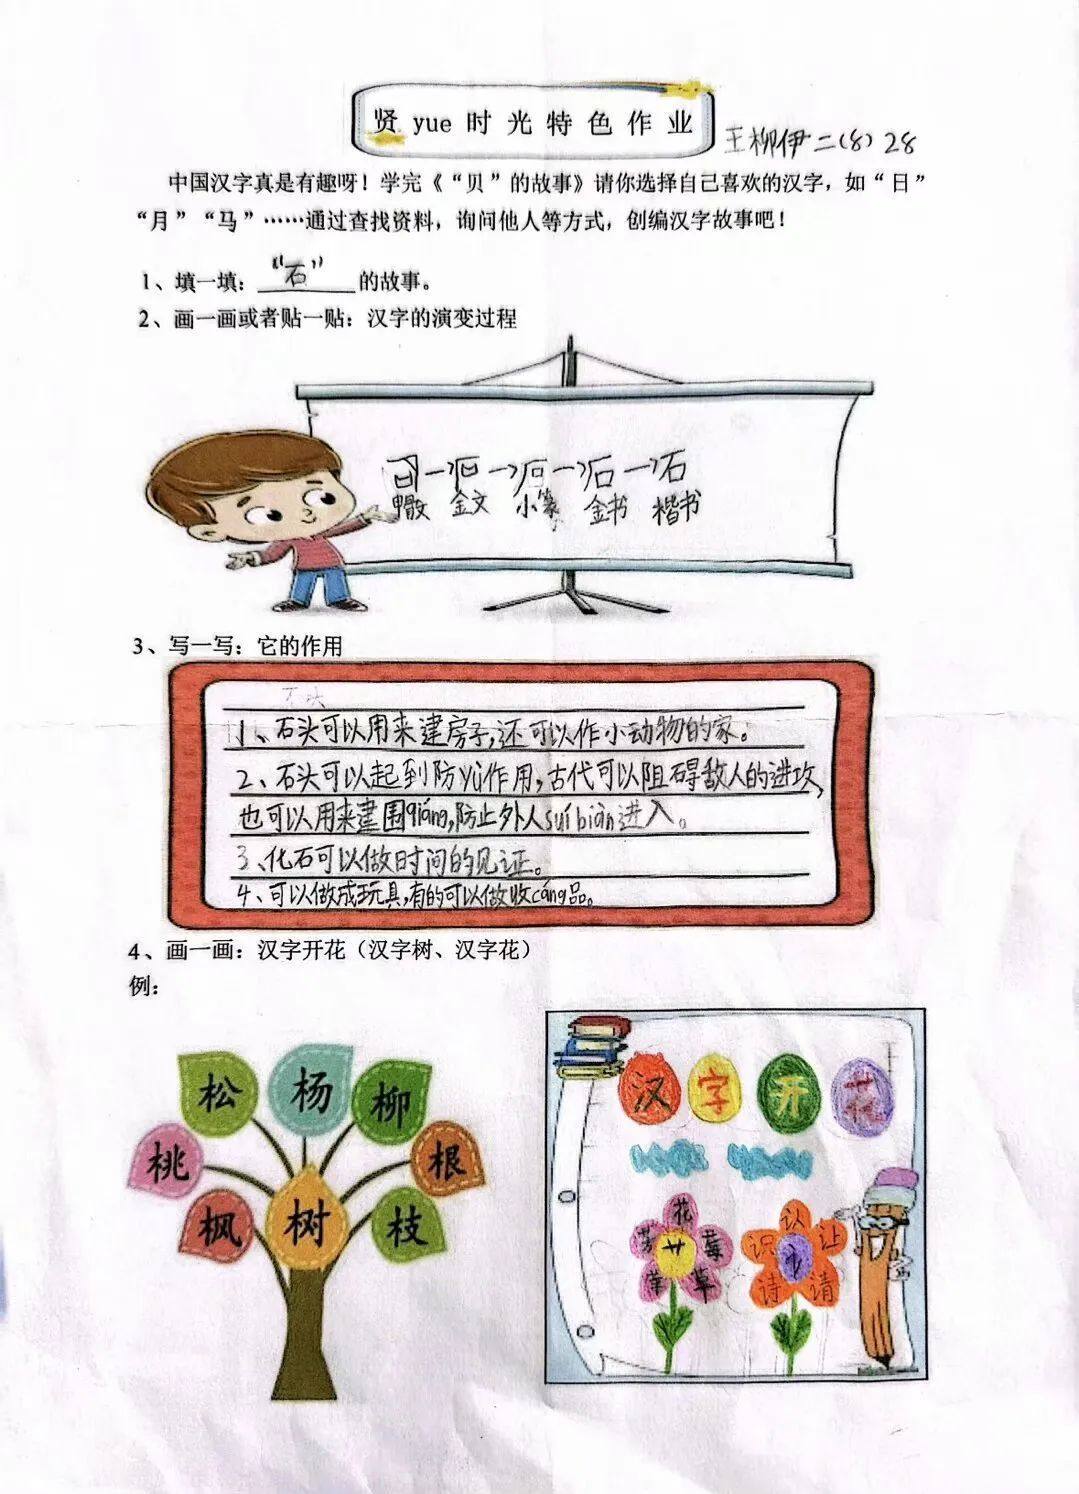 贤 yue 时 光 特 色 作 业
王柳伊 二(8) 28
中国汉字真是有趣呀！学完《“贝”的故事》请你选择自己喜欢的汉字，如“日”
“月”“马”……通过查找资料，询问他人等方式，创编汉字故事吧！
1、填一填：“石”的故事。
2、画一画或者贴一贴：汉字的演变过程
石
金文 小篆 金书 楷书
3、写一写：它的作用
1、石头可以用来建房子,还可以作小动物的家。
2、石头可以起到防yù作用,古代可以阻碍敌人的进攻,
也可以用来建围qiáng,防止外人suí biàn进入。
3、化石可以做时间的见证。
4、可以做成玩具,有的可以做收cáng品。
4、画一画：汉字开花（汉字树、汉字花）
例：
松 杨 柳
桃 根
枫 树 枝
汉 字 开 花
花
芳 艹 莓
草
认
识 讠 让
诗 请